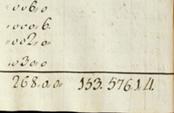 006,0
000,6.
002,0
030,0
268.0.0 153.576.14.